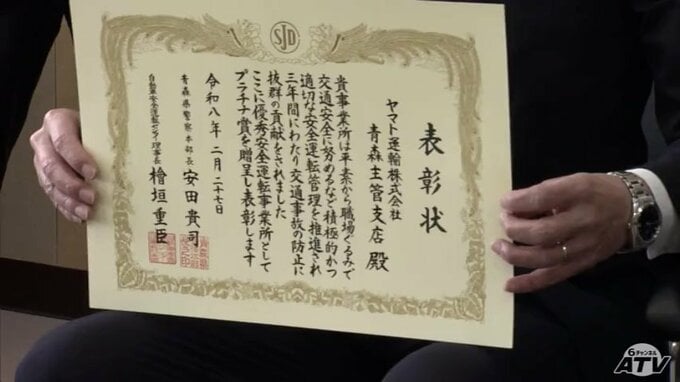 SJD
表彰状
ヤマト運輸株式会社
青森主管支店 殿
貴事業所は平素から職場ぐるみで
交通安全に努めるなど積極的かつ
適切な安全運転管理を推進され
三年間にわたり交通事故の防止に
抜群の貢献をされました
ここに優秀安全運転事業所として
プラチナ賞を贈呈し表彰します
令和八年二月二十七日
青森県警察本部長 安田貴司
自動車安全運転センター理事長 檜垣重臣
6チャンネル
ATV